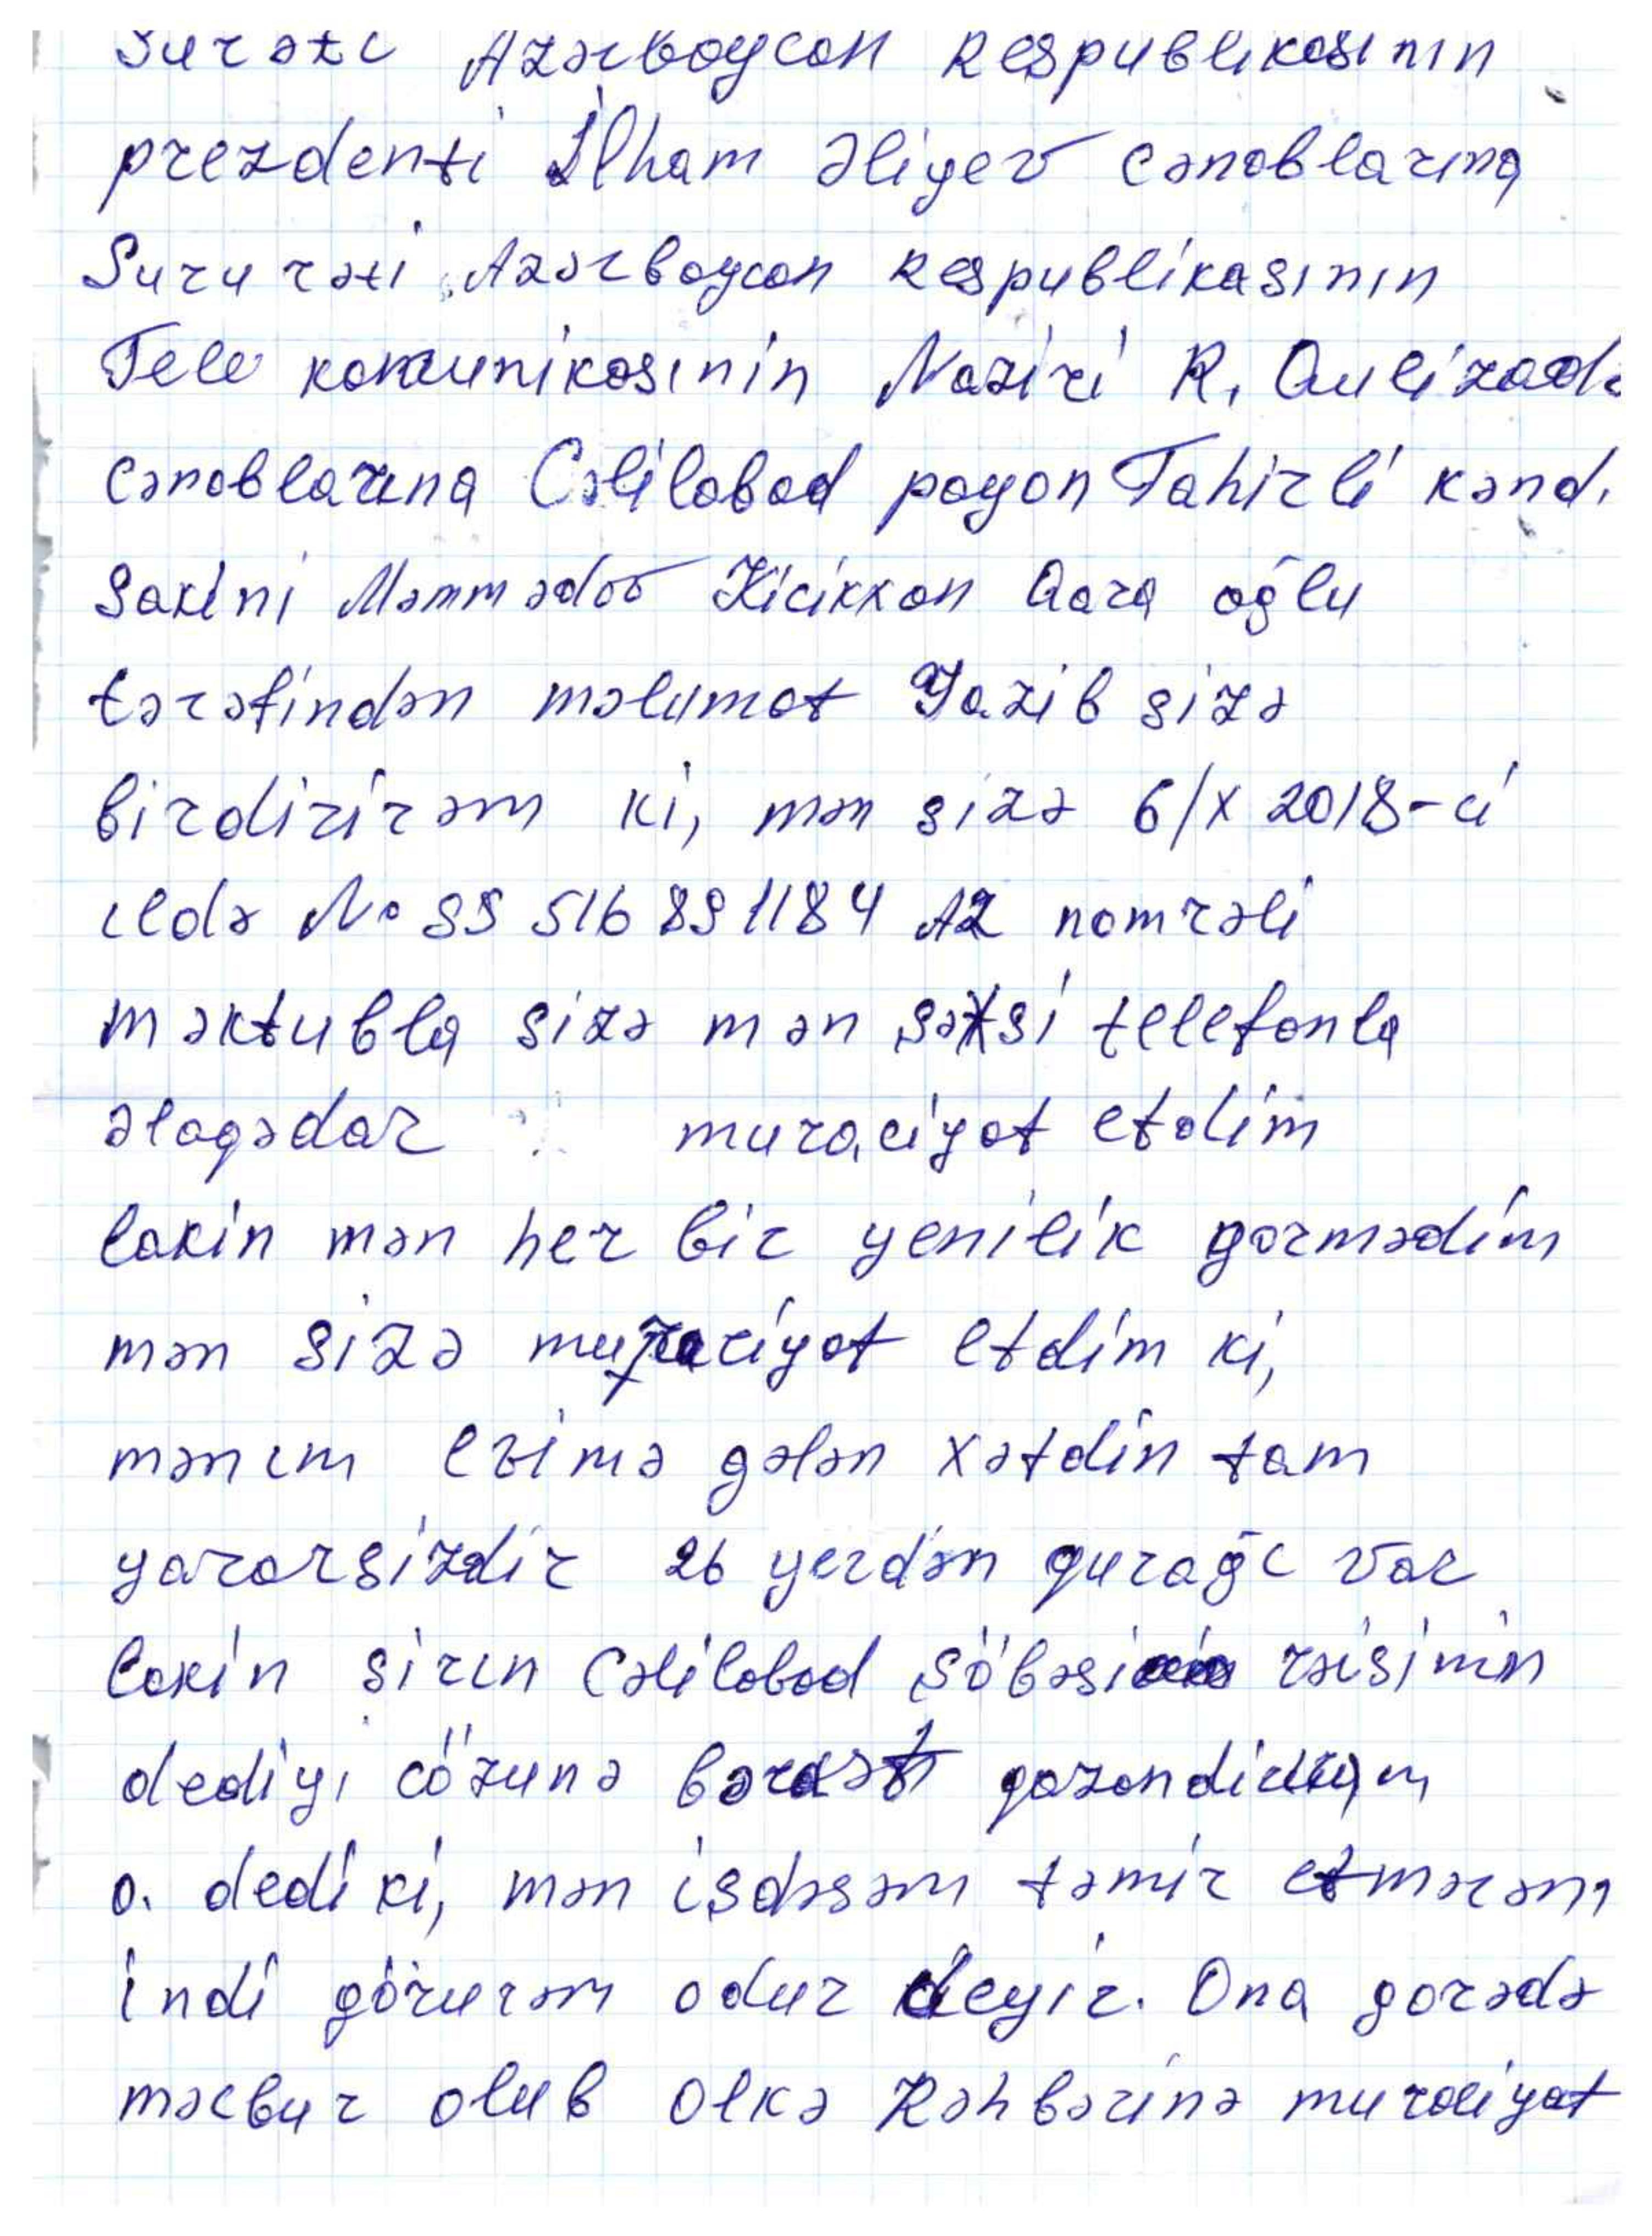 Surəti Azərbaycan Respublikasının
prezdenti İlham Əliyev cənablarına
Sururəti Azərbaycan Respublikasının
Tele komunikasının Naziri R. Quluzadə
cənablarına Cəlilabad rayon Tahirli kənd.
Sakini Məmmədov Kicikxan Qara oğlu
tərəfindən məlumat Yazib sizə
birdirirəm ki, mən sizə 6/X 2018-ci
ildə № SS 516 891184 AZ nomrəli
məktubla sizə mən şəxsi telefonla
əlaqədar muraciyət etdim
lakin mən her bir yenilik gormədim
mən sizə muraciyət etdim ki,
mənim evimə gələn xətdin tam
yararsizdir 26 yerdən qurağı var
lakin sizin Cəlilabad şöbəsinin rəisinin
dediyi cözunə bərast qazandirdıgım
o. dedi ki, mən işdəsəm təmir etmərəm,
indi görurəm odur deyir. Ona gorədə
məcbur olub olkə Rəhbərinə muraciyət